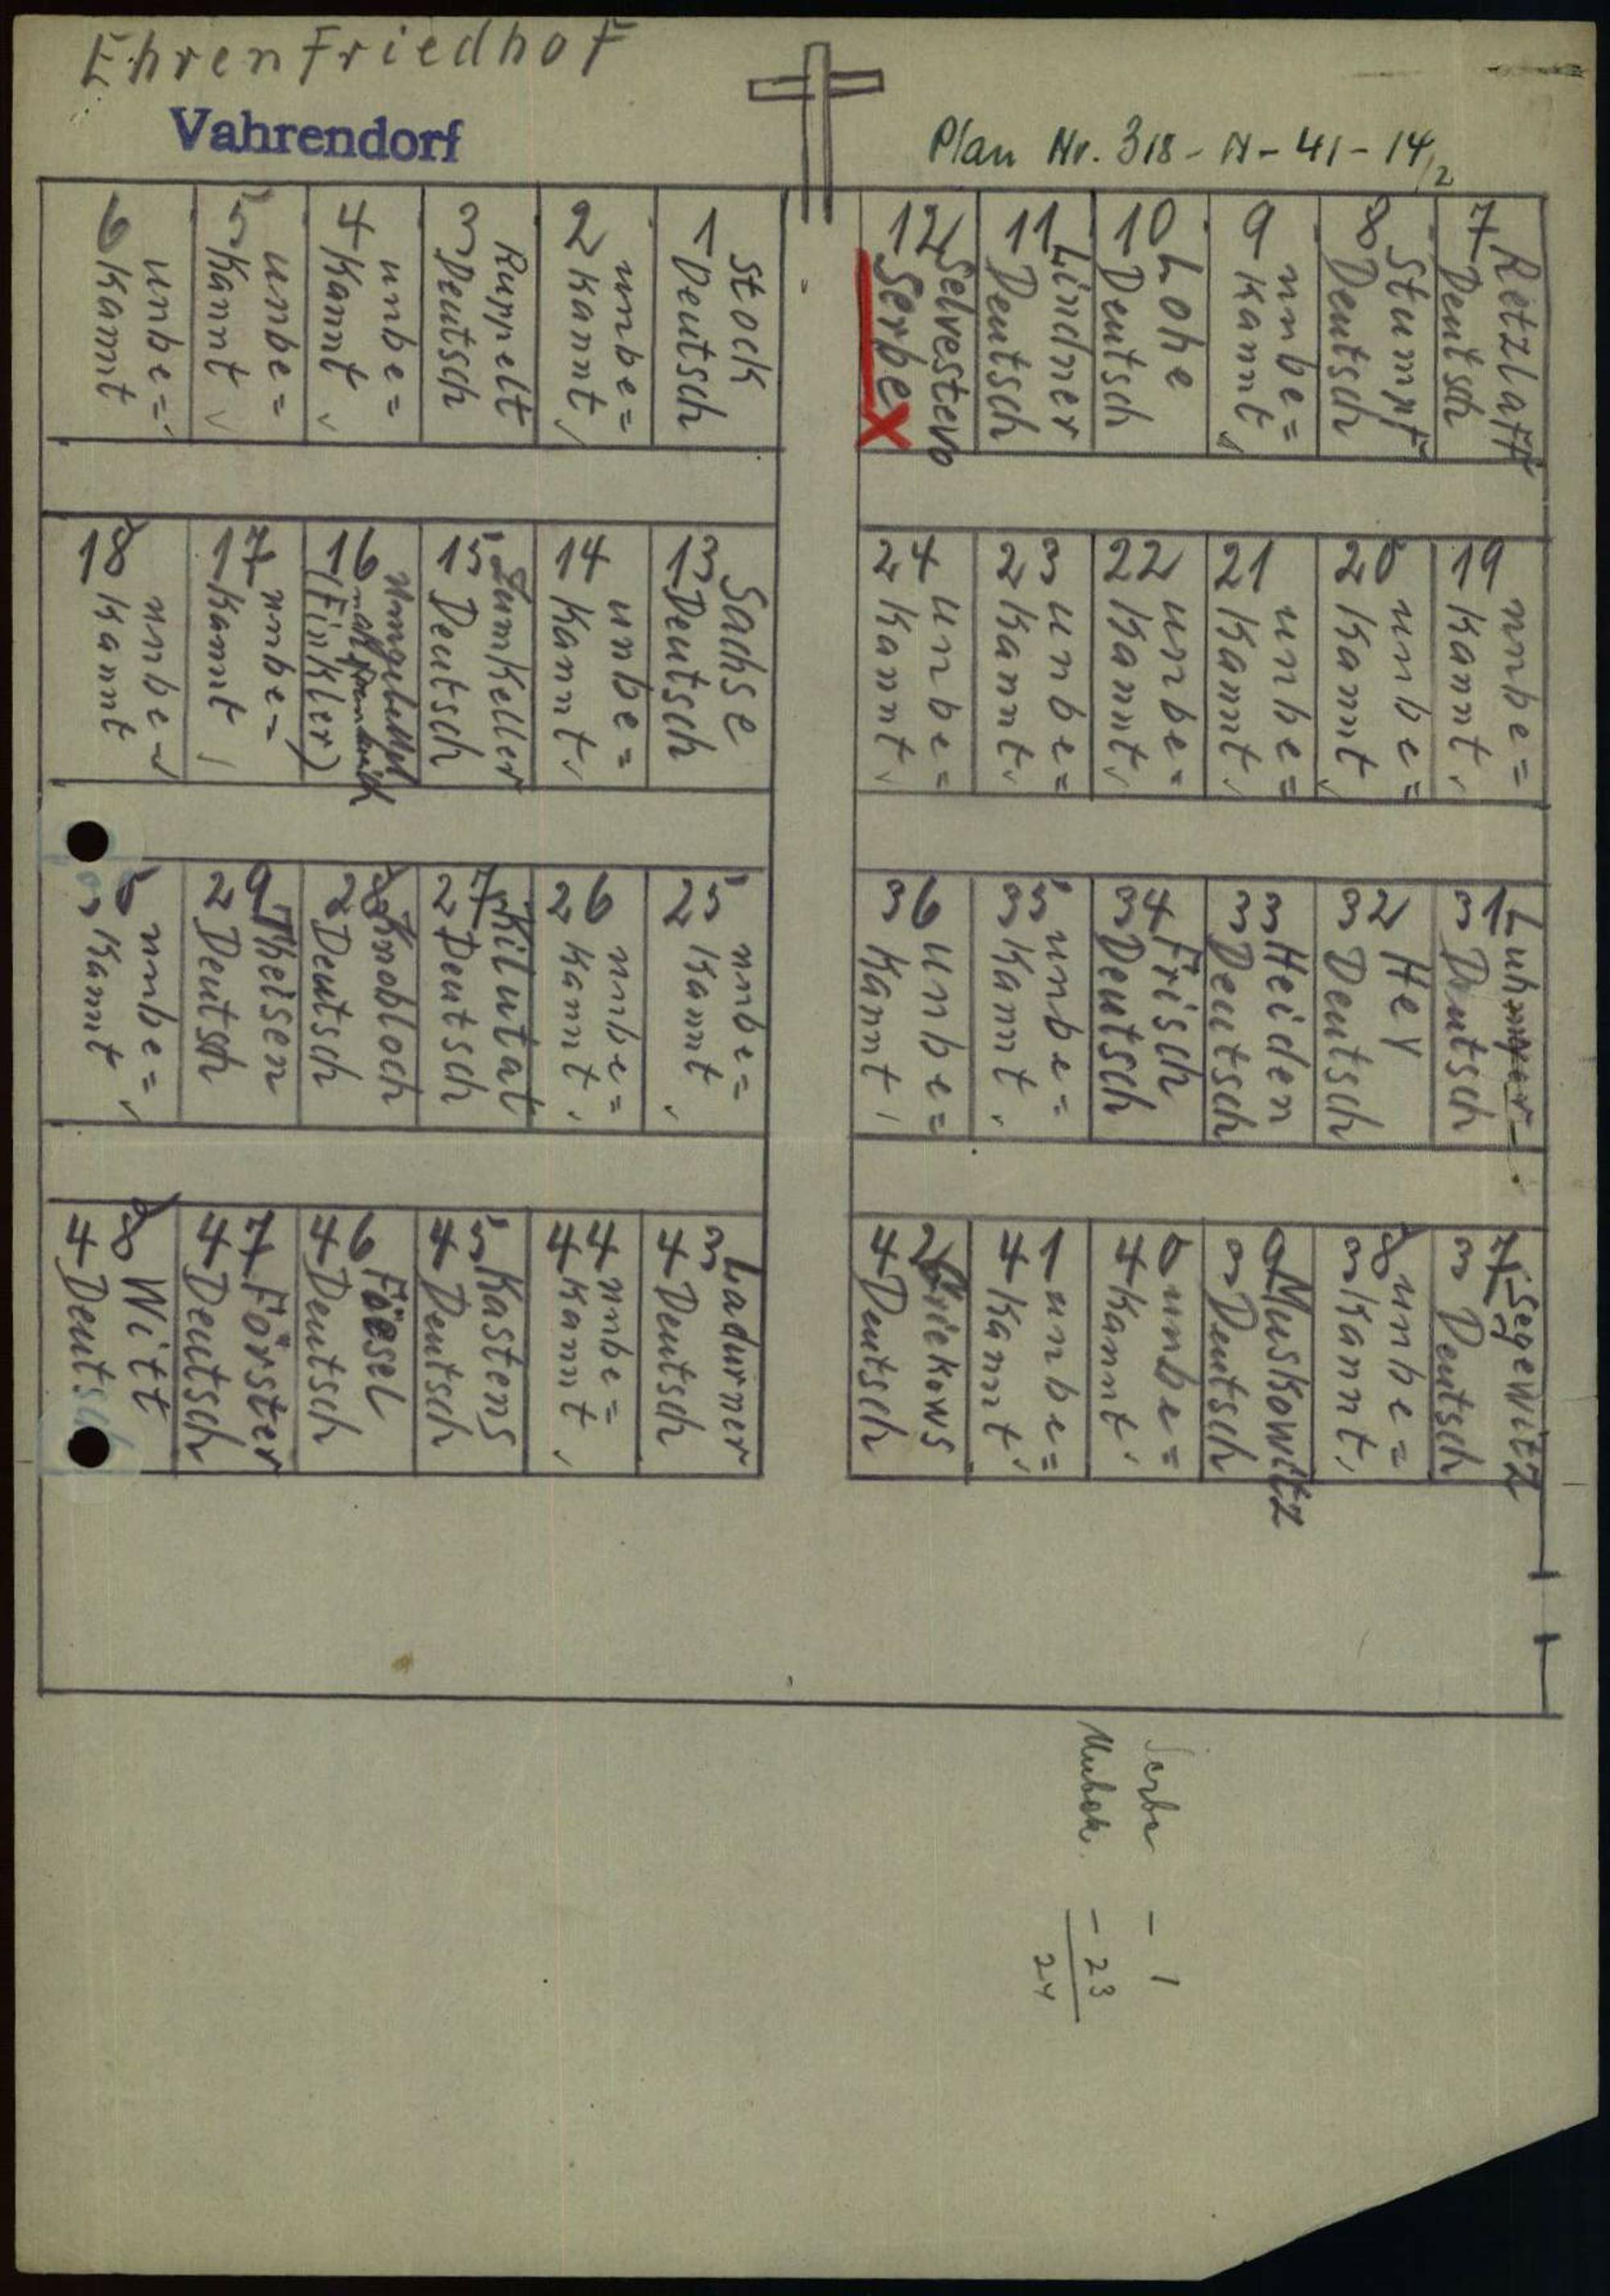 Ehrenfriedhof
Vahrendorf
Plan Nr. 318-N-41-14/2
6 unbe=
kannt
5 unbe=
kannt
4 unbe=
kannt
3 Ruppelt
Deutsch
2 unbe=
kannt
1 Stock
Deutsch
12 Selvestero
Serbe X
11 Lindner
Deutsch
10 Lohe
Deutsch
9 unbe=
kannt
8 Stumpf
Deutsch
7 Retzlaff
Deutsch
18 unbe=
kannt
17 unbe=
kannt
16 umgebettet
nach
(Finkler)
15 Sumkeller
Deutsch
14 unbe=
kannt
13 Sachse
Deutsch
24 unbe=
kannt
23 unbe=
kannt
22 unbe=
kannt
21 unbe=
kannt
20 unbe=
kannt
19 unbe=
kannt
30 unbe=
kannt
29 Theisen
Deutsch
28 Knobloch
Deutsch
27 Kilutat
Deutsch
26 unbe=
kannt
25 unbe=
kannt
36 unbe=
kannt
35 unbe=
kannt
34 Frisch
Deutsch
33 Heiden
Deutsch
32 Hey
Deutsch
31
Deutsch
48 Witt
Deutsch
47 Förster
Deutsch
46 Fösel
Deutsch
45 Kastens
Deutsch
44 unbe=
kannt
43 Ladurner
Deutsch
42
Deutsch
41 unbe=
kannt
40 unbe=
kannt
39 Muskowitz
Deutsch
38 unbe=
kannt
37 Segewitz
Deutsch
Serbe - 1
Unbek. - 23
24